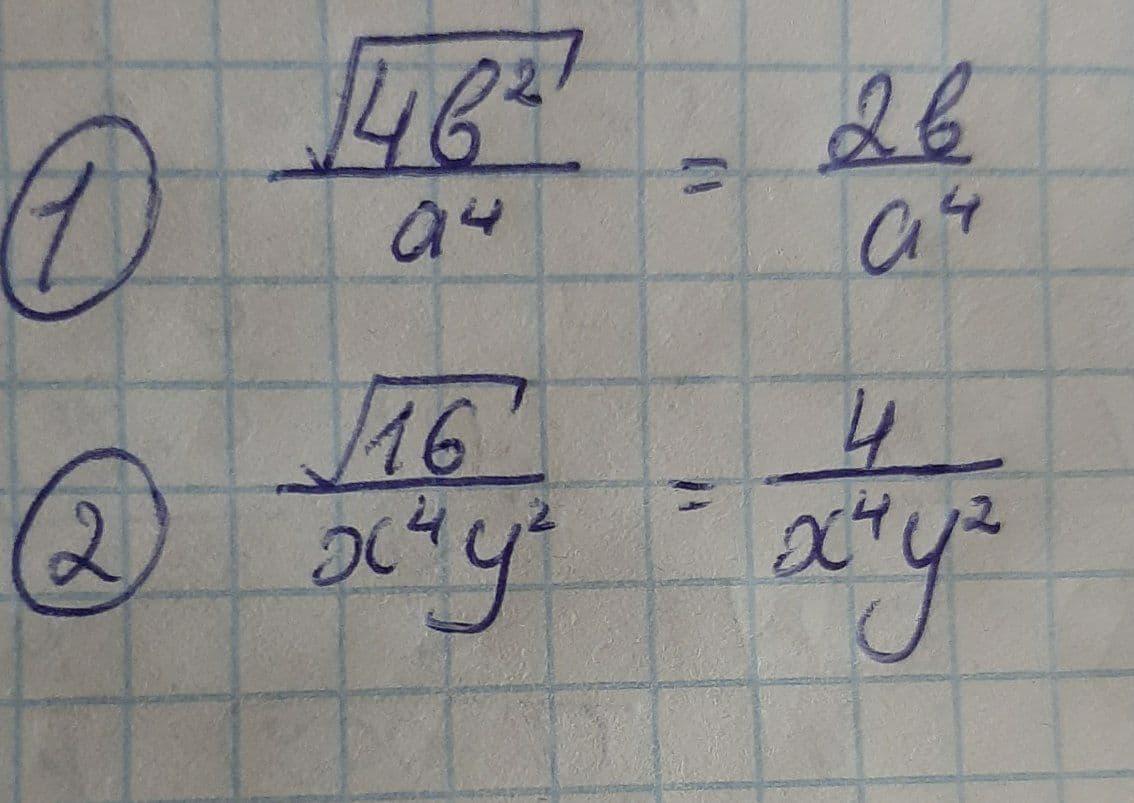 ① √4b² / a⁴ = 2b / a⁴
② √16 / x⁴y² = 4 / x⁴y²